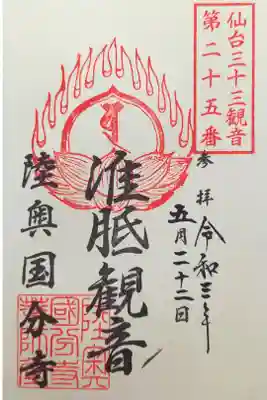 仙台三十三観音
第二十五番
参拝
令和三年
五月二十二日
准胝観音
陸奥国分寺